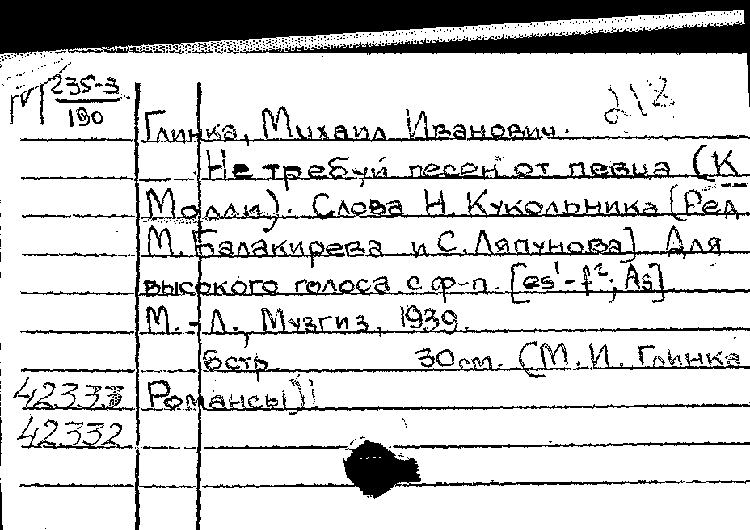 М 235-3
190
218
Глинка, Михаил Иванович.
Не требуй песен от певца (К
Молли). Слова Н. Кукольника [Ред.
М. Балакирева и С. Ляпунова] Для
высокого голоса с ф-п. [es¹-f²; As]
М.-Л., Музгиз, 1939.
6стр. 30см. (М.И. Глинка
42333 Романсы)
42332